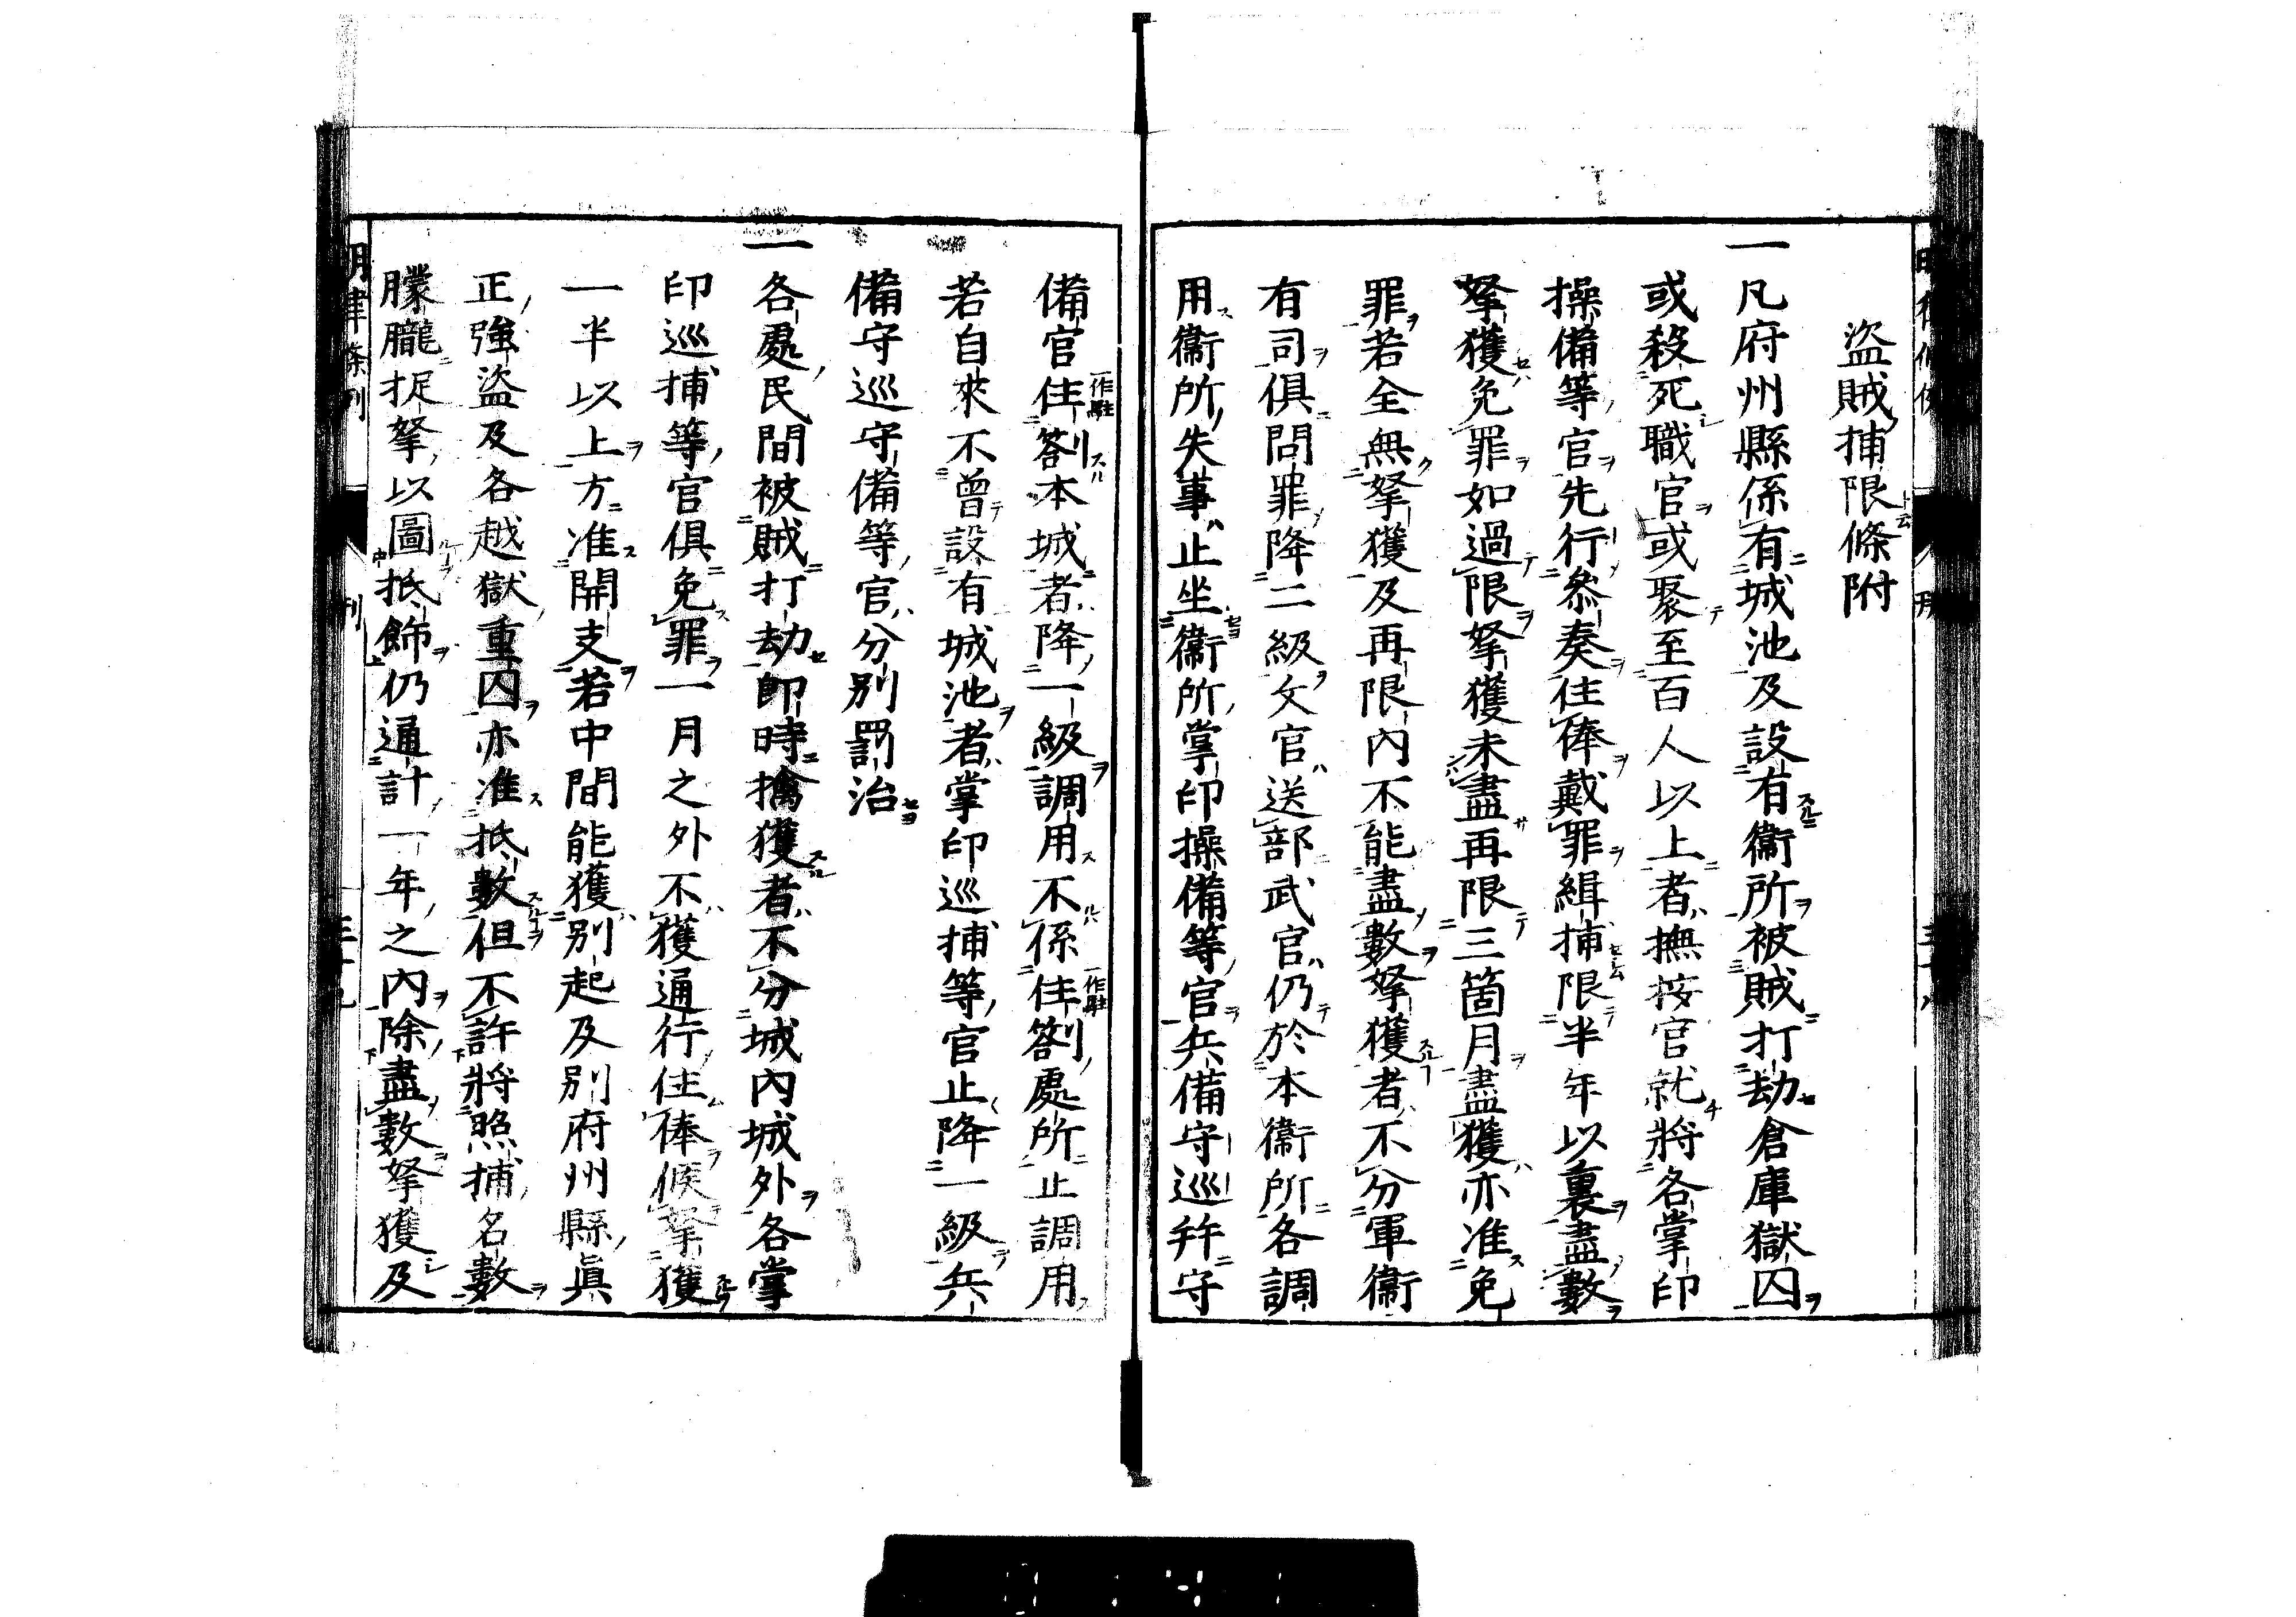 盜賊捕限條附
一凡府州縣係有城池及設有衞所被賊打劫倉庫獄囚
或殺死職官或聚至百人以上者撫按官就將各掌印
操備等官先行叅奏住俸戴罪緝捕限半年以裏盡數
拏獲免罪如過限拏獲未盡再限三箇月盡獲亦准免
罪若全無拏獲及再限內不能盡數拏獲者不分軍衞
有司俱問罪降二級文官送部武官仍於本衞所各調
用衞所失事止坐衞所掌印操備等官兵備守巡幷守
備官住劄本城者降一級調用不係住劄處所止調用
一作駐
一作駐
若自來不曾設有城池者掌印巡捕等官止降一級兵
備守巡守備等官分別罰治
一各處民間被賊打劫卽時擒獲者不分城內城外各掌
印巡捕等官俱免罪一月之外不獲通行住俸候拏獲
一半以上方准開支若中間能獲別起及別府州縣眞
正強盜及各越獄重囚亦准抵數但不許將照捕名數
朦朧捉拏以圖抵飾仍通計一年之內除盡數拏獲及
明律條例
刑